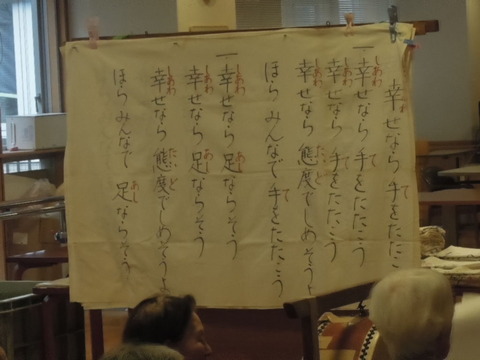 幸せなら手をたたこ
一幸せなら手をたたこう
幸せなら手をたたこう
幸せなら態度でしめそうよ
ほらみんなで手をたたこう
一幸せなら足ならそう
幸せなら足ならそう
幸せなら態度でしめそうよ
ほらみんなで足ならそう